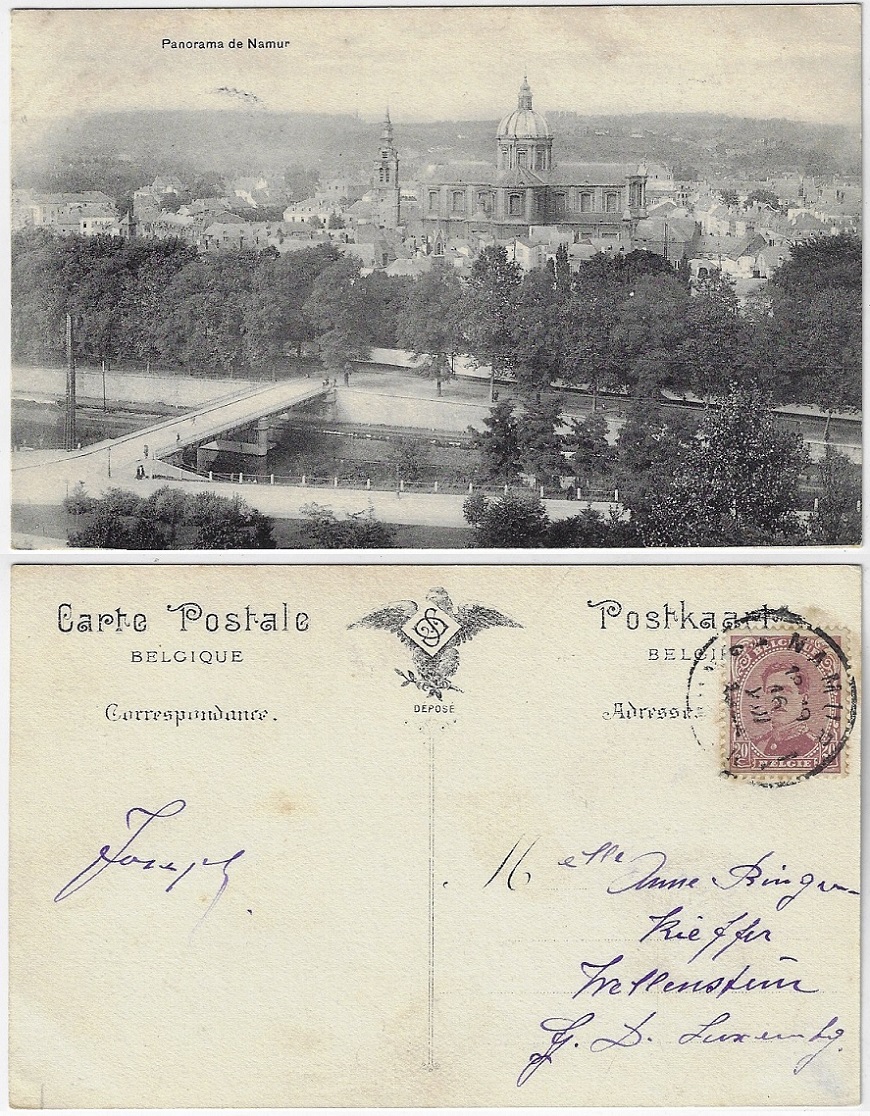 Panorama de Namur
Carte Postale
BELGIQUE
Correspondance.
DÉPOSÉ
Postkaart
BELGIË
Adresse
NAMUR
BELGIQUE
20 BELGIE 20
Joseph
Melle Anne Ringer-
Kieffer
Wellenstein
G. D. Luxembg.